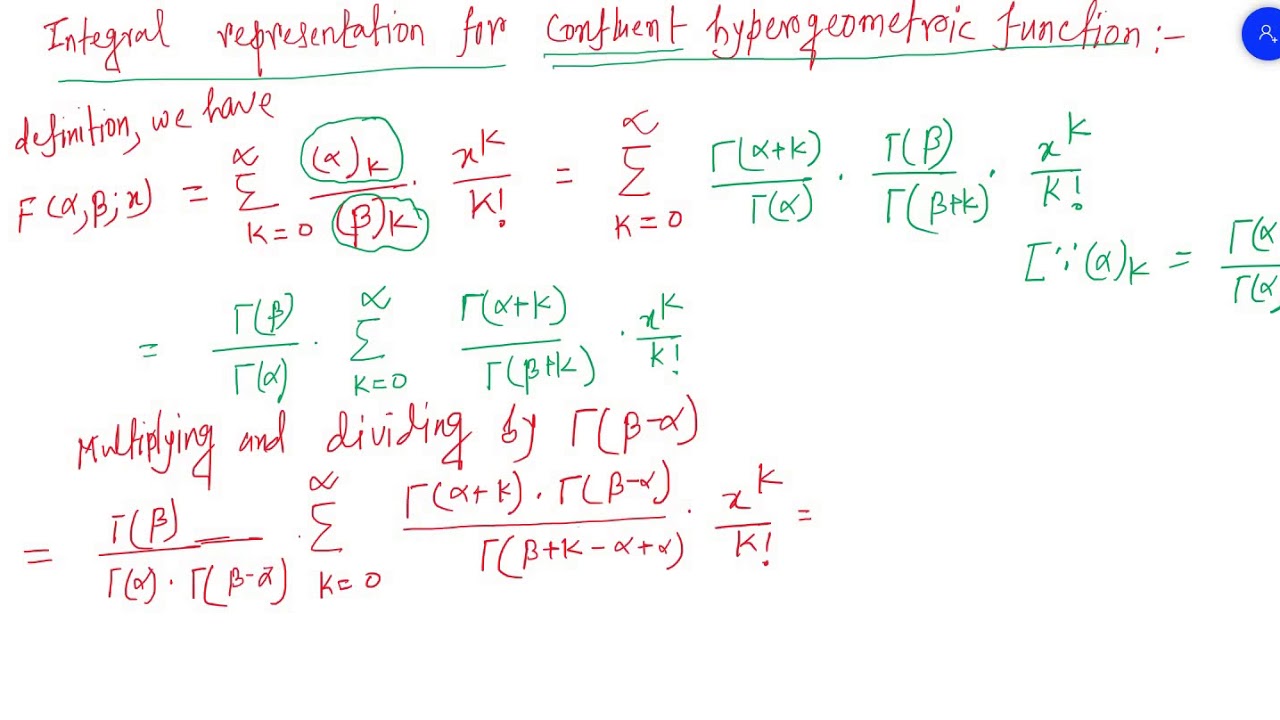 Integral representation for Confluent hypergeometric function :-
definition, we have
F(α,β;x) = ∞ Σ k=0 (α)k / (β)k · x^k / k! = ∞ Σ k=0 Γ(α+k) / Γ(α) · Γ(β) / Γ(β+k) · x^k / k!
[∵ (α)k = Γ(α / Γ(α)
= Γ(β) / Γ(α) · ∞ Σ k=0 Γ(α+k) / Γ(β+k) · x^k / k!
Multiplying and dividing by Γ(β-α)
= Γ(β) / Γ(α)·Γ(β-α) · ∞ Σ k=0 Γ(α+k)·Γ(β-α) / Γ(β+k-α+α) · x^k / k! =